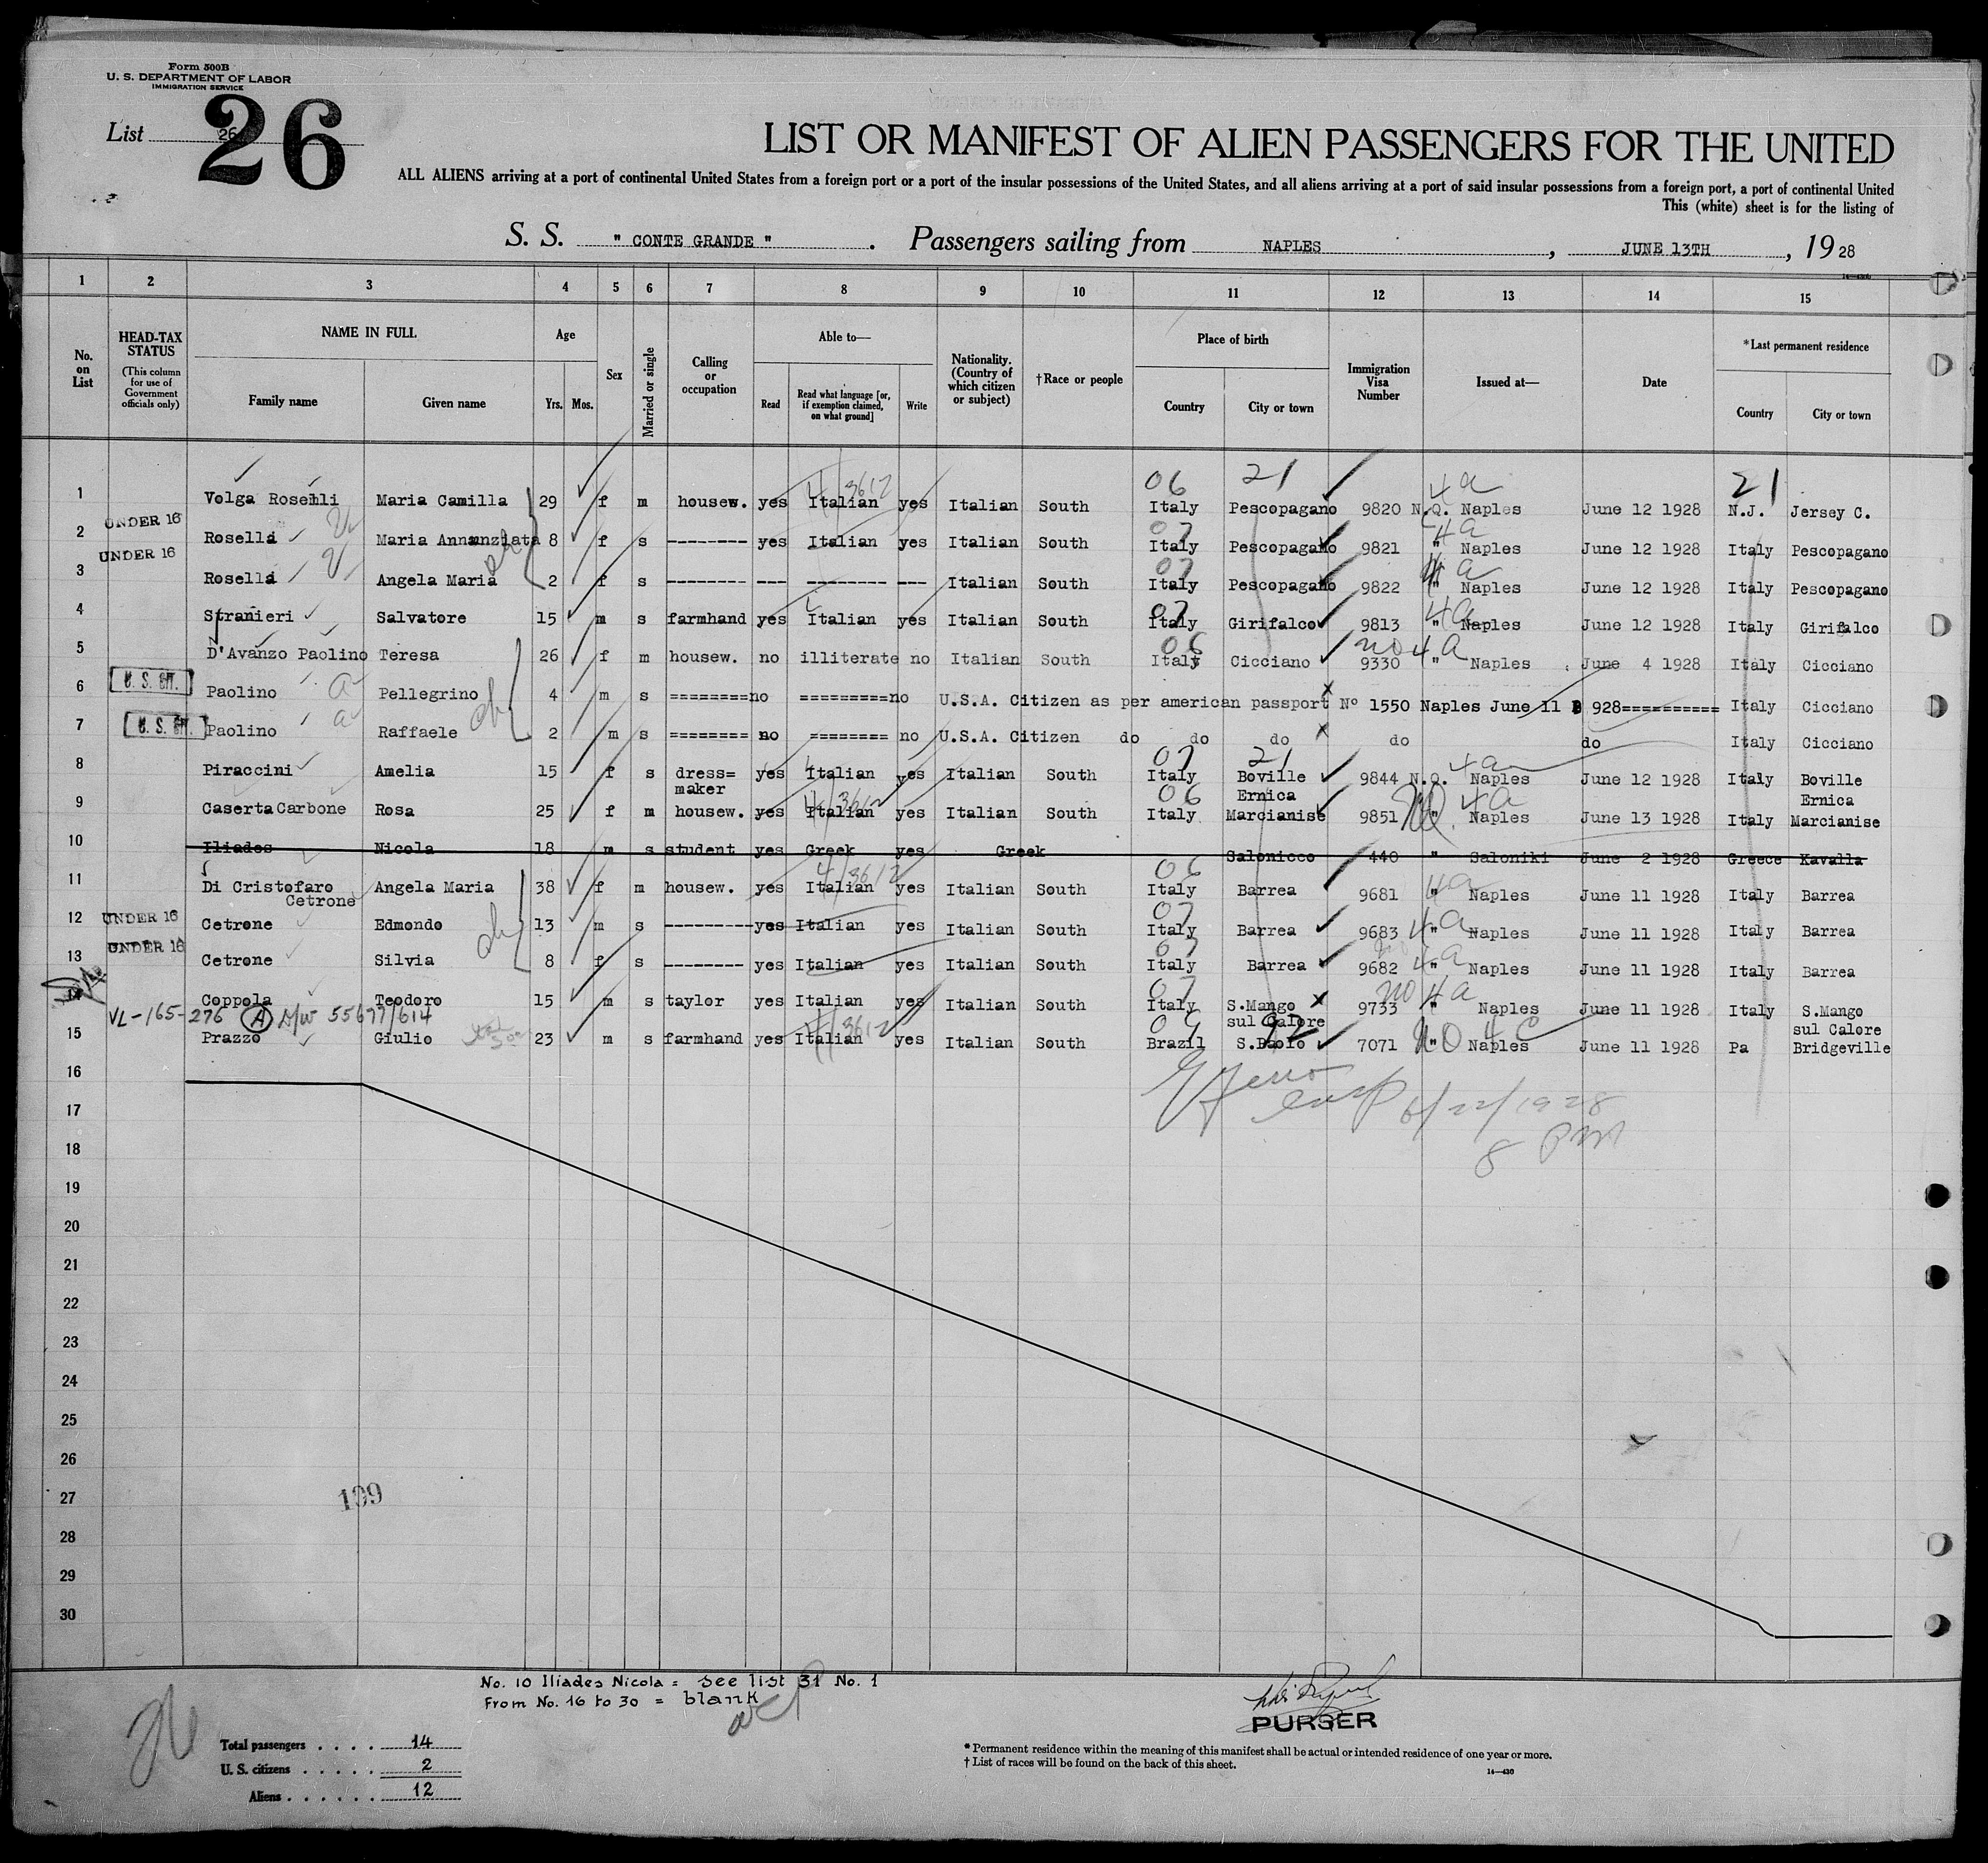 Form 500B
U. S. DEPARTMENT OF LABOR
IMMIGRATION SERVICE
List 26
26
LIST OR MANIFEST OF ALIEN PASSENGERS FOR THE UNITED
ALL ALIENS arriving at a port of continental United States from a foreign port or a port of the insular possessions of the United States, and all aliens arriving at a port of said insular possessions from a foreign port, a port of continental United
This (white) sheet is for the listing of
S. S. " CONTE GRANDE " . Passengers sailing from NAPLES , JUNE 13TH , 1928
1 2 3 4 5 6 7 8 9 10 11 12 13 14 15
No. on List
HEAD-TAX STATUS
(This column for use of Government officials only)
NAME IN FULL
Family name Given name
Age
Yrs. Mos.
Sex
Married or single
Calling or occupation
Able to—
Read
Read what language [or, if exemption claimed, on what ground]
Write
Nationality. (Country of which citizen or subject)
†Race or people
Place of birth
Country City or town
Immigration Visa Number
Issued at—
Date
*Last permanent residence
Country City or town
06 21 4a 21
1 Volga Maria Camilla 29 f m housew. yes Italian yes Italian South Italy Pescopagano 9820 N.Q. Naples June 12 1928 N.J. Jersey C.
UNDER 16
07 4a
2 Rosella Maria Annunziata 8 f s -------- yes Italian yes Italian South Italy Pescopagano 9821 " Naples June 12 1928 Italy Pescopagano
UNDER 16
07 4a
3 Rosella Angela Maria 2 f s -------- --- -------- --- Italian South Italy Pescopagano 9822 " Naples June 12 1928 Italy Pescopagano
07 4a
4 Stranieri Salvatore 15 m s farmhand yes Italian yes Italian South Italy Girifalco 9813 " Naples June 12 1928 Italy Girifalco
06 no 4a
5 D'Avanzo Paolino Teresa 26 f m housew. no illiterate no Italian South Italy Cicciano 9330 " Naples June 4 1928 Italy Cicciano
U. S. CIT.
6 Paolino Pellegrino 4 m s ========no =========no U.S.A. Citizen as per american passport Nº 1550 Naples June 11 928========== Italy Cicciano
U. S. CIT.
7 Paolino Raffaele 2 m s ======== no ======== no U.S.A. Citizen do do do do do Italy Cicciano
07 21 4a
8 Piraccini Amelia 15 f s dress= maker yes Italian yes Italian South Italy Boville Ernica 9844 N.Q. Naples June 12 1928 Italy Boville Ernica
06 4a
9 Caserta Carbone Rosa 25 f m housew. yes Italian yes Italian South Italy Marcianise 9851 Naples June 13 1928 Italy Marcianise
10 Iliades Nicola 18 m s student yes Greek yes Greek Salonicco 440 " Saloniki June 2 1928 Greece Kavalla
06 4a
11 Di Cristofaro Cetrone Angela Maria 38 f m housew. yes Italian yes Italian South Italy Barrea 9681 " Naples June 11 1928 Italy Barrea
UNDER 16
07 4a
12 Cetrone Edmondo 13 m s ---------yes Italian yes Italian South Italy Barrea 9683 " Naples June 11 1928 Italy Barrea
UNDER 16
07 4a
13 Cetrone Silvia 8 f s -------- yes Italian yes Italian South Italy Barrea 9682 " Naples June 11 1928 Italy Barrea
07 no 4a
Coppola Teodoro 15 m s taylor yes Italian yes Italian South Italy S.Mango sul Calore 9733 " Naples June 11 1928 Italy S.Mango sul Calore
VL-165-276 A 55677/614
15 Prazzo Giulio 23 m s farmhand yes Italian yes Italian South Brazil S.Paolo 7071 " Naples June 11 1928 Pa Bridgeville
NO 4C
16
6/22/1928
17
8 PM
18
19
20
21
22
23
24
25
26
27
109
28
29
30
No. 10 Iliades Nicola = see list 31 No. 1
From No. 16 to 30 = blank
PURSER
Total passengers . . . . 14
U. S. citizens . . . . . 2
Aliens . . . . . . 12
* Permanent residence within the meaning of this manifest shall be actual or intended residence of one year or more.
† List of races will be found on the back of this sheet.
14—430